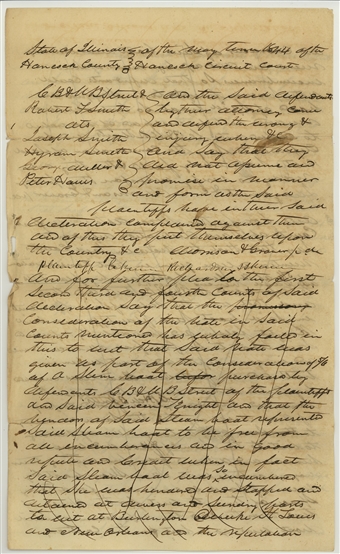 State of Illinois } of the May Term 1844 of the
Hancock County } Hancock Circuit court
C B & M B Street & } And the said defendants
Robert F Smith } by their attorney come
ats } and defend the wrong &
Joseph Smith } injury when &c
Hyrum Smith } And say that they
Henry Miller & } did not assume and
Peter Haws } promise in manner
and form as the said
plaintiffs have in their said
declaration complained against them
and of this they put themselves upon
the Country &c
plaintiff
And for further plea to the first
Second third and fourth Counts of said
declaration say that the
Consideration of the note in said
Counts mentioned has wholly failed in
this to wit that said note was
given as part of the Consideration of &c
of a Steam boat purchased by
defendants C B & M B Street of the plaintiffs
and said Vinson Knight and that the
vendors of said steam boat represented
said steam boat to be free from
all incumbrances and in good
repute and Credit when in fact
said steam boat was so incumbered
that she was hindered and stopped and
detained at divers and sundry ports
to wit at Burlington St Louis
and New Orleans and the reputation